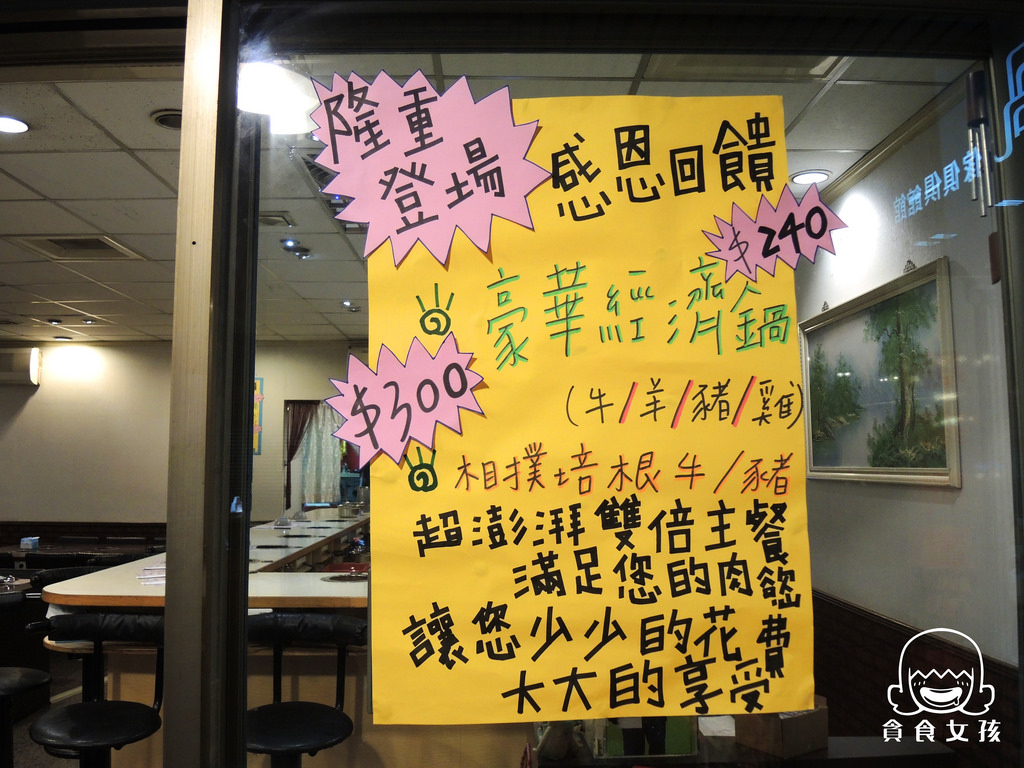 隆重
登場
感恩回饋
$240
豪華經濟鍋
(牛/羊/豬/雞)
$300
相撲培根牛/豬
超澎湃雙倍主餐
滿足您的肉慾
讓您少少的花費
大大的享受
貪食女孩